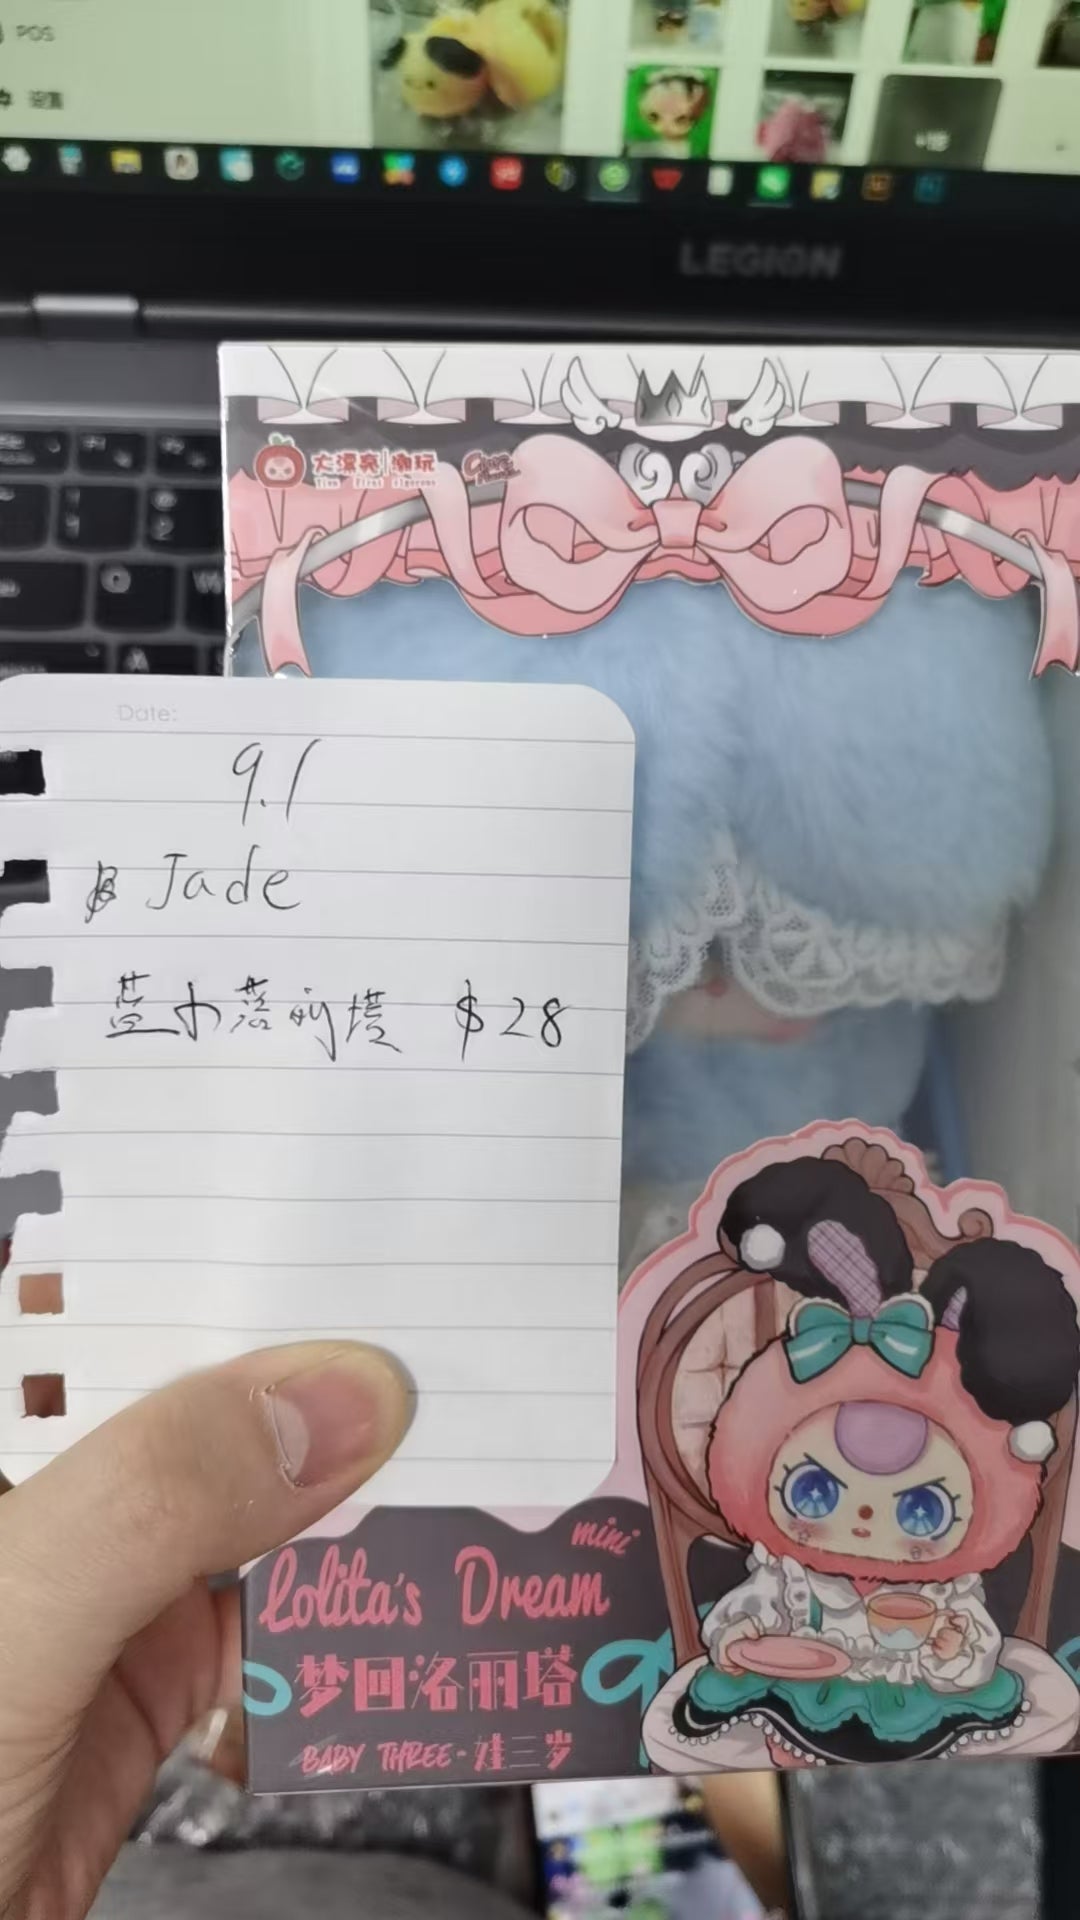 POS
设置
+18
LEGION
大漂亮|潮玩
Date:
9.1
Jade
蓝小落俐塔 $28
mini
Lolita's Dream
梦回洛丽塔
BABY THREE-娃三岁